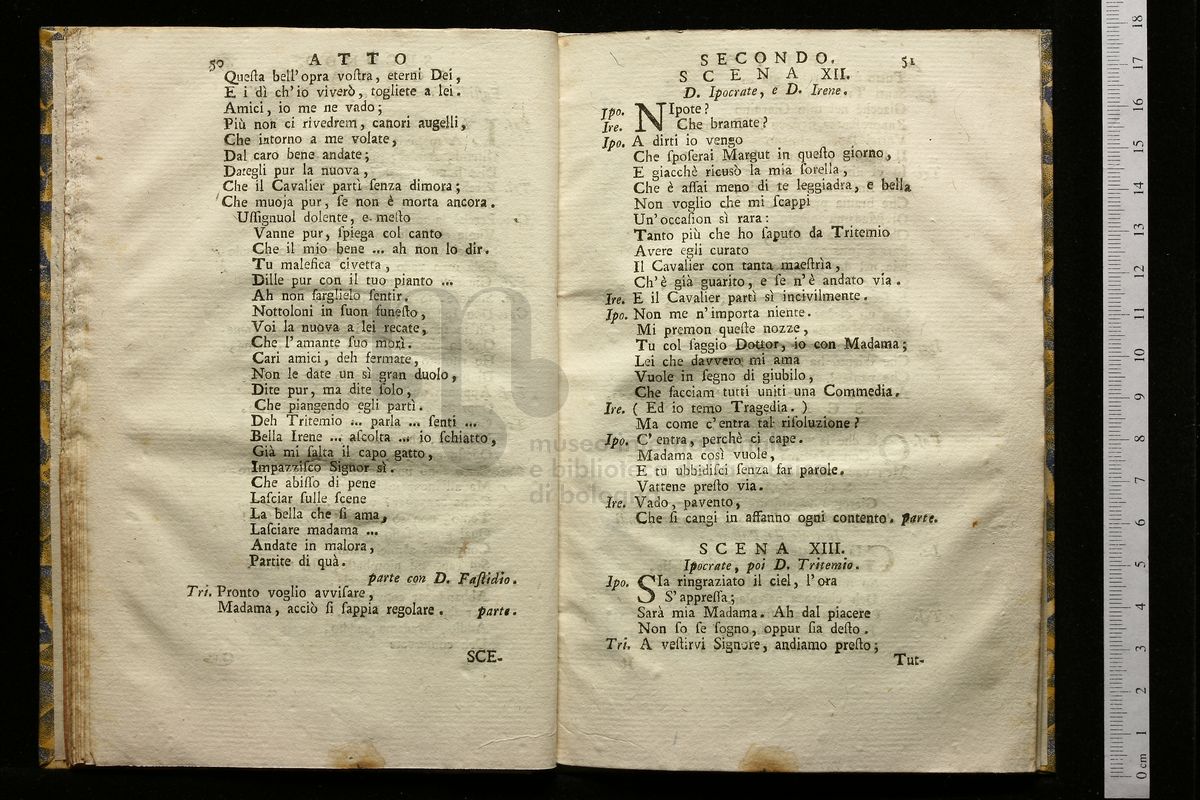 50 ATTO
Queſta bell' opra voſtra, eterni Dei,
E i dì ch'io viverò, togliete a lei.
Amici, io me ne vado;
Più non ci rivedrem, canori augelli,
Che intorno a me volate,
Dal caro bene andate;
Dategli pur la nuova,
Che il Cavalier partì ſenza dimora;
Che muoja pur, ſe non è morta ancora.
Uſſignuol dolente, e meſto
Vanne pur, ſpiega col canto
Che il mio bene ... ah non lo dir.
Tu malefica civetta,
Dille pur con il tuo pianto ...
Ah non farglielo ſentir.
Nottoloni in ſuon funeſto,
Voi la nuova a lei recate,
Che l'amante ſuo morì.
Cari amici, deh fermate,
Non le date un sì gran duolo,
Dite pur, ma dite ſolo,
Che piangendo egli partì.
Deh Tritemio ... parla ... ſenti ...
Bella Irene ... aſcolta ... io ſchiatto,
Già mi ſalta il capo gatto,
Impazziſco Signor sì.
Che abiſſo di pene
Laſciar ſulle ſcene
La bella che ſi ama,
Laſciare madama ...
Andate in malora,
Partite di quà.
parte con D. Faſtidio.
Tri. Pronto voglio avviſare,
Madama, acciò ſi ſappia regolare. parte.
SCE-
SECONDO. 51
SCENA XII.
D. Ipocrate, e D. Irene.
Ipo. NIpote?
Ire. Che bramate?
Ipo. A dirti io vengo
Che ſpoſerai Margut in queſto giorno,
E giacchè ricusò la mia ſorella,
Che è aſſai meno di te leggiadra, e bella
Non voglio che mi ſcappi
Un'occaſion sì rara:
Tanto più che ho ſaputo da Tritemio
Avere egli curato
Il Cavalier con tanta maeſtrìa,
Ch'è già guarito, e ſe n'è andato via.
Ire. E il Cavalier partì sì incivilmente.
Ipo. Non me n'importa niente.
Mi premon queſte nozze,
Tu col ſaggio Dottor, io con Madama;
Lei che davvero mi ama
Vuole in ſegno di giubilo,
Che facciam tutti uniti una Commedia.
Ire. ( Ed io temo Tragedia. )
Ma come c'entra tal riſoluzione?
Ipo. C'entra, perchè ci cape.
Madama così vuole,
E tu ubbidiſci ſenza far parole.
Vattene preſto via.
Ire. Vado, pavento,
Che ſi cangi in affanno ogni contento. parte.
SCENA XIII.
Ipocrate, poi D. Tritemio.
Ipo. SIa ringraziato il ciel, l'ora
S'appreſſa;
Sarà mia Madama. Ah dal piacere
Non ſo ſe ſogno, oppur ſia deſto.
Tri. A veſtirvi Signore, andiamo preſto;
Tut-
museo
e bibliote
di bologn
0 cm 1 2 3 4 5 6 7 8 9 10 11 12 13 14 15 16 17 18